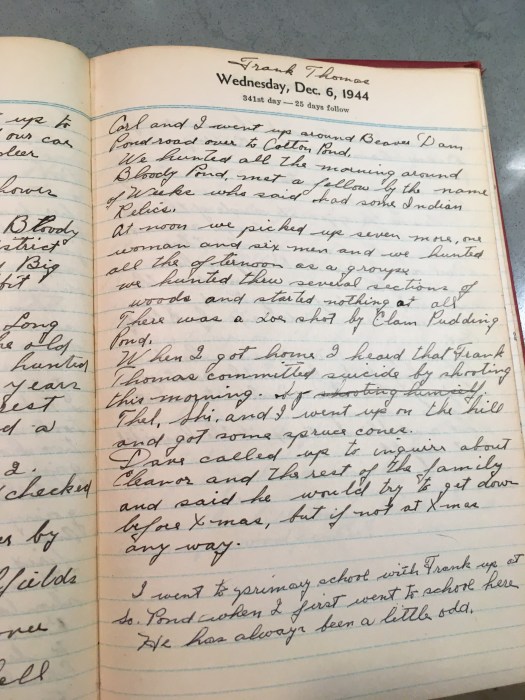 up to
our car
deer
hower
Bloody
istrict
Big
bit
Long
he old
hunted
years
rest
d a
2.
checked
by
fields
ell
Frank Thomas
Wednesday, Dec. 6, 1944
341st day — 25 days follow
Carl and I went up around Beaver Dam
Pond road over to Cotton Pond.
We hunted all the morning around
Bloody Pond, met a fellow by the name
of Weeks who said had some Indian
Relics.
At noon we picked up seven more, one
woman and six men and we hunted
all the afternoon as a groupe.
we hunted thru several sections of
woods and started nothing at all
There was a doe shot by Clam Pudding
Pond.
When I got home I heard that Frank
Thomas committed suicide by shooting
this morning. by shooting himself
Thel, Shi, and I went up on the hill
and got some spruce cones.
Dave called up to inquire about
Eleanor and the rest of the family
and said he would try to get down
before X-mas, but if not at X-mas
any way.
I went to primary school with Frank up at
So. Pond when I first went to school here
He has always been a little odd.